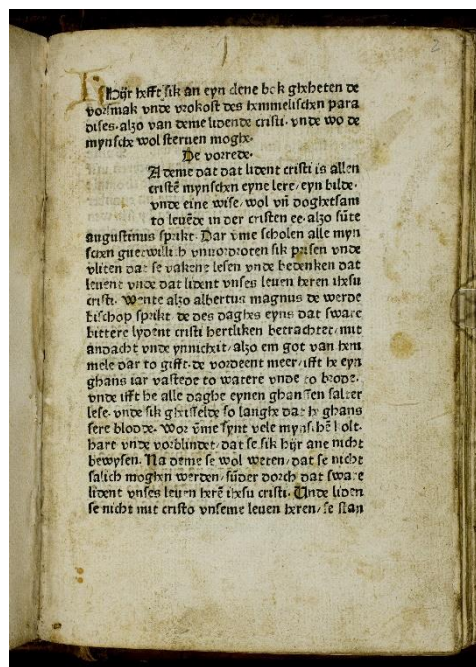 2
Hijr hefft sik an eyn clene bok gheheten de
vorsmak vnde vrokost des hemmelischen para
dises. alzo van deme lidende cristi. vnde wo de
mynsche wol steruen moghe.
De vorrede.
A deme dat dat lident cristi is allen
cristē mynschen eyne lere, eyn bilde.
vnde eine wise, wol vn̄ doghetsam
to leuēde in der cristen ee. alzo sūte
augustinus sprikt. Dar vme scholen alle myn
schen guetwillich vnuordroten sik prisen vnde
vliten dat se vakene lesen vnde bedenken dat
leuent vnde dat lident vnses leuen heren ihesu
cristi. Wente alzo albertus magnus de werde
bischop sprikt. de des daghes eyns dat sware
bittere lydent cristi hertliken betrachtet, mit
andacht vnde ynnicheit, alzo em got van hem
mele dar to gifft. de vordeent meer, ifft he eyn
ghans iar vastede to watere vnde to brode.
vnde ifft he alle daghe eynen ghanssen salter
lese. vnde sik gheisselde so langhe dat he ghans
sere blodde. Wor vme synt vele mynschē holt.
hart vnde vorblindet, dat se sik hijr ane nicht
bewysen. Na deme se wol weten, dat se nicht
salich moghen werden, sūder dorch dat sware
lident vnses leuen herē ihesu cristi. Vnde liden
se nicht mit cristo vnseme leuen heren, se stan